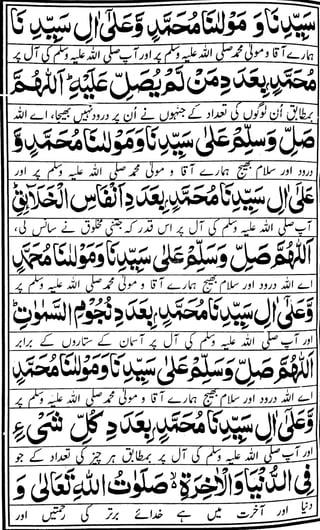 سَيِّدِنَا وَ مَوْلٰنَا مُحَمَّدٍ وَّعَلٰٓى اٰلِ سَيِّدِ نَا
ہمارے آقا و مولیٰ محمد صلی اللہ علیہ وسلم پر اور آپ صلی اللہ علیہ وسلم کی آل پر
مُحَمَّدٍ بِعَدَدِ مَنْ لَّمْ يُصَلِّ عَلَيْهِ ؕ اَللّٰهُمَّ
بمطابق اُن لوگوں کی تعداد کے جنہوں نے اُن پر درود نہیں بھیجا، اے اللہ
صَلِّ وَسَلِّمْ عَلٰى سَيِّدِنَا وَمَوْلٰنَا مُحَمَّدٍ وَّ
درود اور سلام بھیج ہمارے آقا و مولیٰ محمد صلی اللہ علیہ وسلم پر اور
عَلٰٓى اٰلِ سَيِّدِنَا مُحَمَّدٍ بِعَدَدِ اَنْفَاسِ الْخَلَآئِقِ ؕ
آپ صلی اللہ علیہ وسلم کی آل پر اس قدر کہ جتنی مخلوق نے سانس لی،
اَللّٰهُمَّ صَلِّ وَسَلِّمْ عَلٰى سَيِّدِنَا وَمَوْلٰنَا مُحَمَّدٍ
اے اللہ درود اور سلام بھیج ہمارے آقا و مولیٰ محمد صلی اللہ علیہ وسلم پر
وَّعَلٰٓى اٰلِ سَيِّدِنَا مُحَمَّدٍ بِعَدَدِ نُجُوْمِ السَّمٰوٰتِ ؕ
اور آپ صلی اللہ علیہ وسلم کی آل پر آسمان کے ستاروں کے برابر
اَللّٰهُمَّ صَلِّ وَسَلِّمْ عَلٰى سَيِّدِنَا وَمَوْلٰنَا مُحَمَّدٍ
اے اللہ درود اور سلام بھیج ہمارے آقا و مولیٰ محمد صلی اللہ علیہ وسلم پر
وَّعَلٰٓى اٰلِ سَيِّدِنَا مُحَمَّدٍ بِعَدَدِ كُلِّ شَیْءٍ
اور آپ صلی اللہ علیہ وسلم کی آل پر بمطابق ہر چیز کی تعداد کے جو
فِی الدُّنْيَا وَالْاٰخِرَةِ ؕ صَلَوٰتُ اللّٰهِ تَعَالٰى وَ
دنیا اور آخرت میں ہے خدائے برتر کی رحمتیں اور